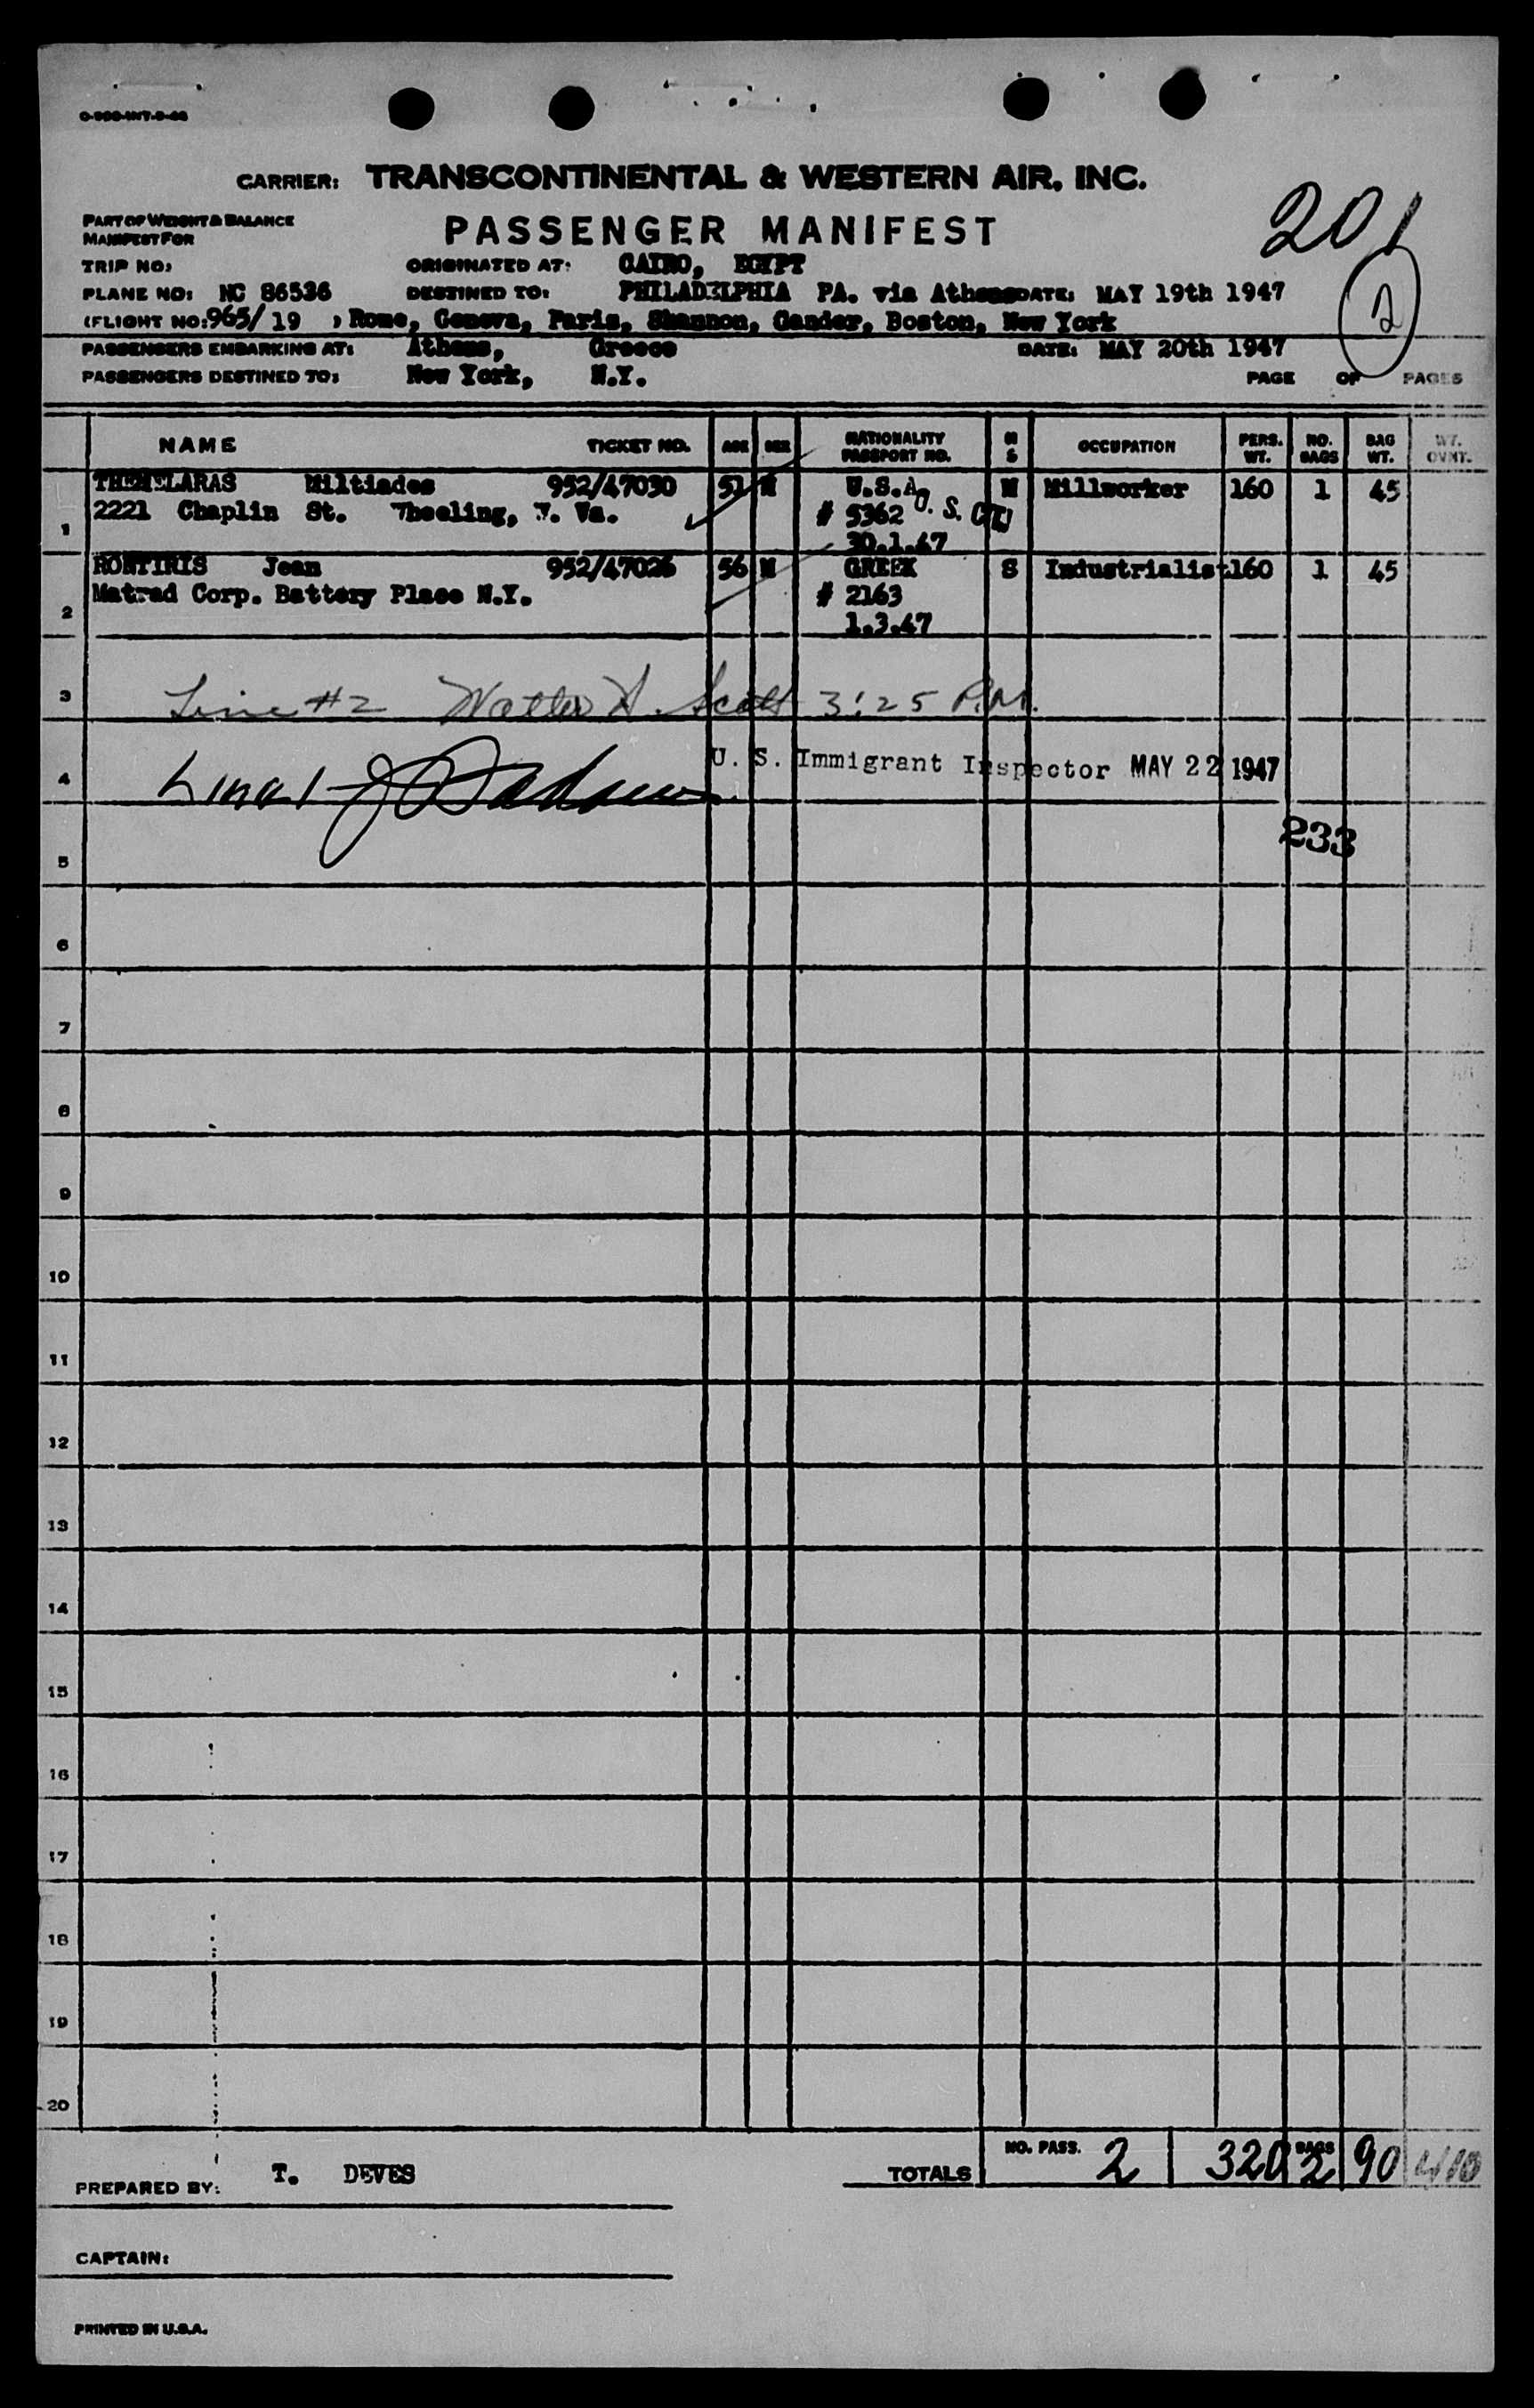 CARRIER: TRANSCONTINENTAL & WESTERN AIR, INC.
PART OF WEIGHT & BALANCE
MANIFEST FOR
PASSENGER MANIFEST
201
TRIP NO: ORIGINATED AT: CAIRO, EGYPT
PLANE NO: NC 86536 DESTINED TO: PHILADELPHIA PA. via Athens DATE: MAY 19th 1947
(FLIGHT NO: 965/19 ) Rome, Geneva, Paris, Shannon, Gander, Boston, New York
2
PASSENGERS EMBARKING AT: Athens, Greece DATE: MAY 20th 1947
PASSENGERS DESTINED TO: New York, N.Y. PAGE OF PAGES
NAME TICKET NO. AGE SEX NATIONALITY PASSPORT NO. M S OCCUPATION PERS. WT. NO. BAGS BAG WT. WT. OVNT.
THEMELARAS Miltiades 952/47030 M U.S.A. M Millworker 160 1 45
2221 Chaplin St. Wheeling, W. Va. # 5362 U. S. CIT
1 30.1.47
RONTIRIS Jean 952/47026 56 M GREEK S Industrialist 160 1 45
Matrad Corp. Battery Place N.Y. # 2163
2 1.3.47
3 Line #2 Walter H. Scott 3:25 P.M.
4 Line 1 U. S. Immigrant Inspector MAY 22 1947
233
5
6
7
8
9
10
11
12
13
14
15
16
17
18
19
20
TOTALS NO. PASS. 2 320 BAGS 2 90 410
PREPARED BY: T. DEVES
CAPTAIN:
PRINTED IN U.S.A.